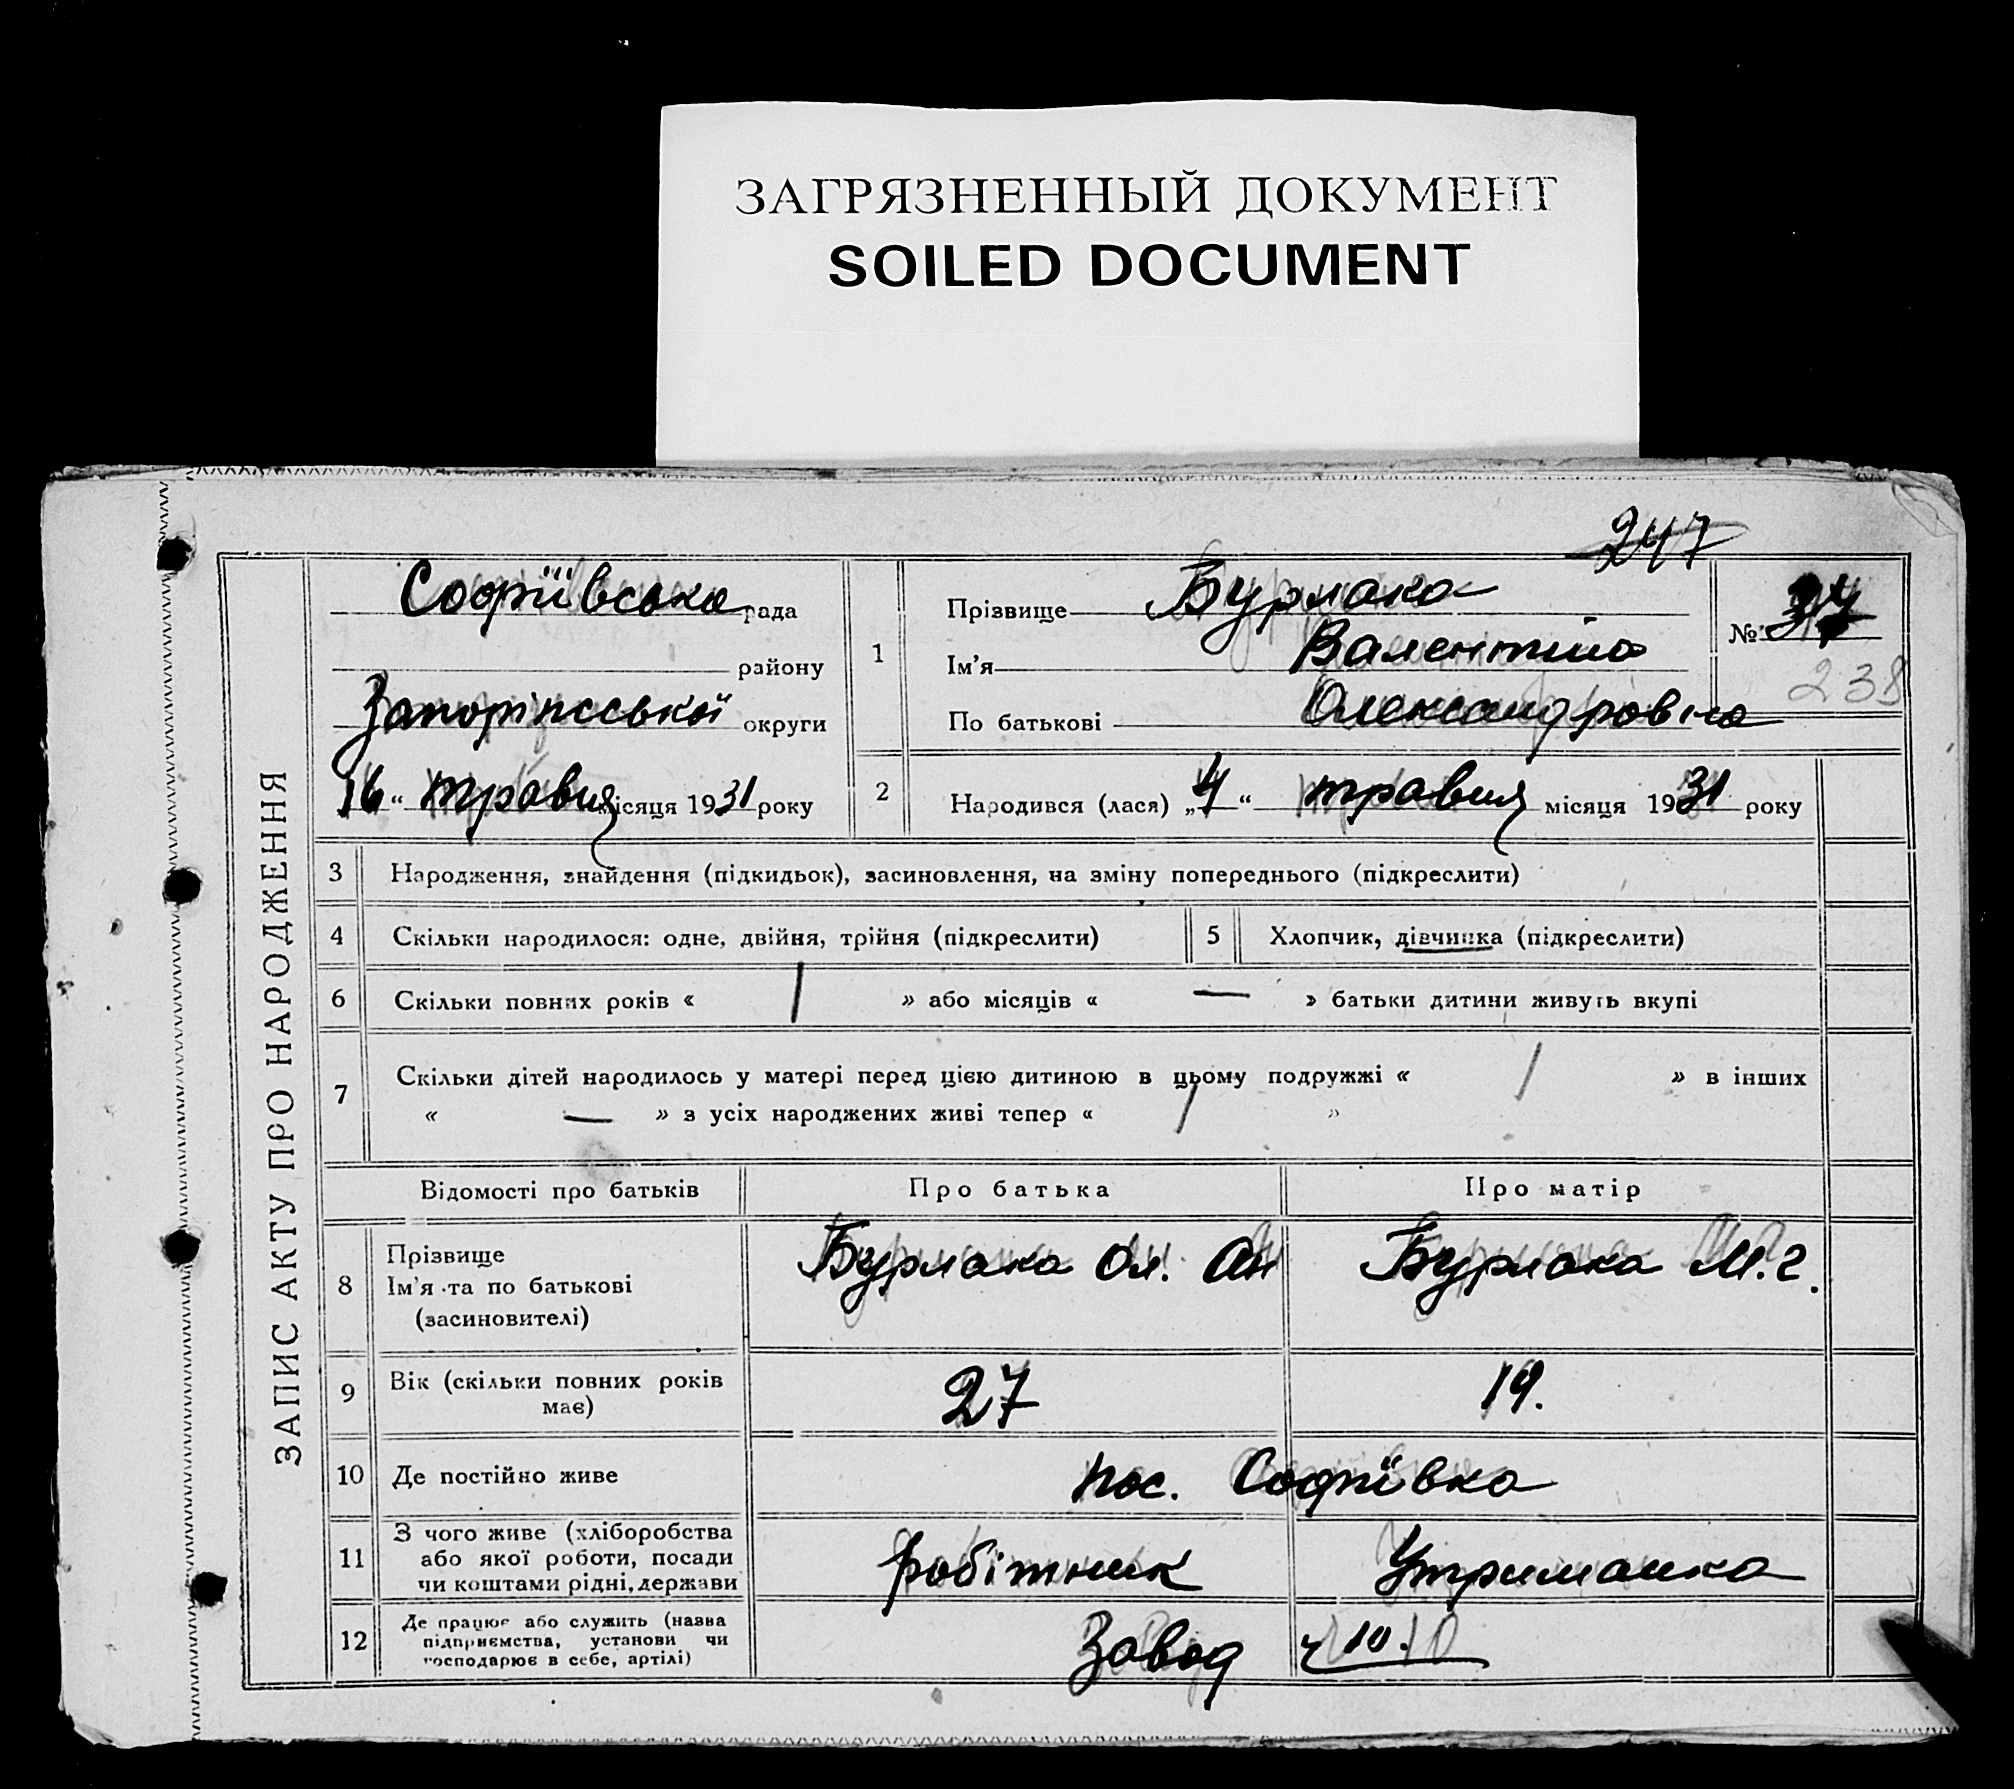 ЗАГРЯЗНЕННЫЙ ДОКУМЕНТ
SOILED DOCUMENT
247
ЗАПИС АКТУ ПРО НАРОДЖЕННЯ
Софіївська рада
району
Запоріжської округи
16 “ травня місяця 1931 року
1
Прізвище Бурлака
Ім’я Валентина
По батькові Олександровна
№
238
2
Народився (лася) „4“ травня місяця 1931 року
3 Народження, знайдення (підкидьок), засиновлення, на зміну попереднього (підкреслити)
4 Скільки народилося: одне, двійня, трійня (підкреслити) 5 Хлопчик, дівчинка (підкреслити)
6 Скільки повних років « 1 » або місяців « — » батьки дитини живуть вкупі
7 Скільки дітей народилось у матері перед цією дитиною в цьому подружжі « 1 » в інших
« — » з усіх народжених живі тепер « 1 »
Відомості про батьків Про батька Про матір
8 Прізвище
Ім’я та по батькові
(засиновителі)
Бурлака Ол. Ан Бурлака М. Г.
9 Вік (скільки повних років
має)
27 19.
10 Де постійно живе пос. Софіївка
11 З чого живе (хліборобства
або якої роботи, посади
чи коштами рідні, держави
робітник Утриманка
12 Де працює або служить (назва
підприємства, установи чи
господарює в себе, артілі)
Завод ч 10.